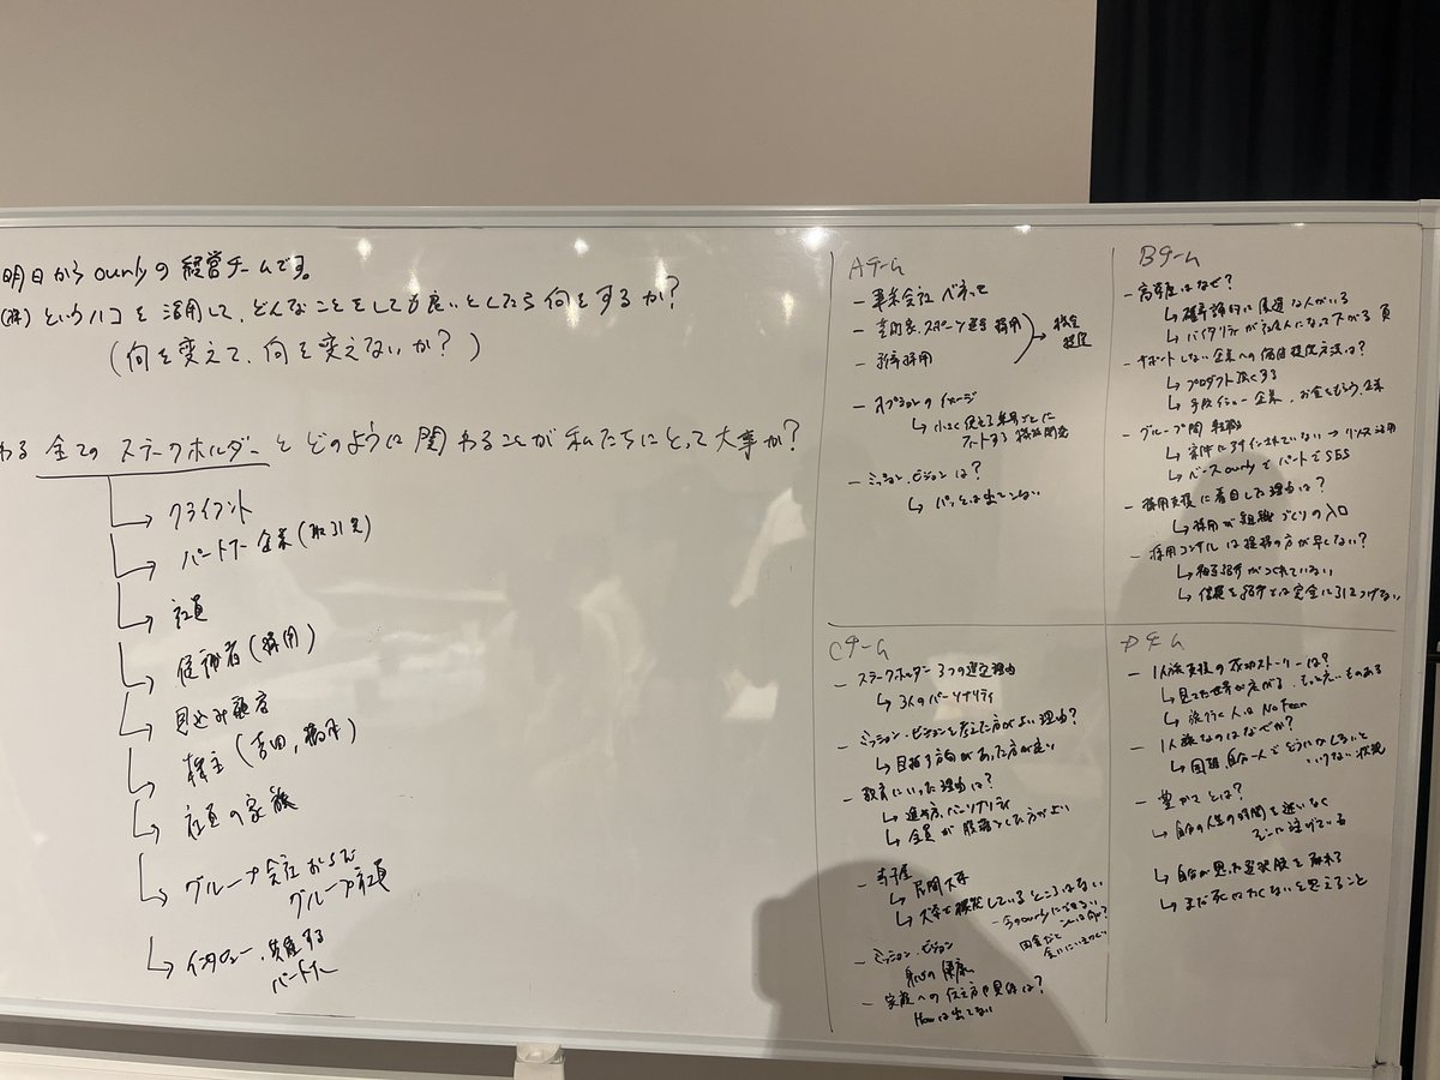 明日からourlyの経営チームです。
(株)というハコを活用して、どんなことをしても良いとしたら何をするか?
(何を変えて、何を変えないか?)
わる 全てのステークホルダーとどのように関わることが私たちにとって大事か?
クライアント
パートナー企業(取引先)
社員
候補者(採用)
見込み顧客
株主(吉田,
社員の家族
グループ会社および
グループ社員
インタビュー、共催する
パートナー
Aチーム
- 軍系会社
- 芸術家、スポーツ選手 採用
- 新卒採用
→ 機会
提供
- オプションのイメージ
↳ 小さく使える業界ごとに
フィットする機能開発
- ミッション、ビジョンは?
↳ パッとは出ていない
Bチーム
- 高卒はなぜ?
↳ 確率論的に優秀な人がいる
↳ バイタリティが社会人になって下がる
- サポートしない企業への価値提供方法は?
↳ プロダクト強くする
↳ 企業、お金をもらう企業
- グループ間転職
↳ 案件にアサインされていない → リソース活用
↳ ベースourlyでパートでSES
- 採用支援に着目した理由は?
↳ 採用が組織づくりの入口
- 採用コンサルは提携の方が早くない?
↳ 相互紹介がつくれていない
↳ 信頼を紹介とは完全に引きつけない
Cチーム
- ステークホルダー 3つの選定理由
↳ 3人のパーソナリティ
- ミッション、ビジョンを考えた方がよい理由?
↳ 目指す方向があった方が良い
- 教育にいった理由は?
↳ 進め方、パーソナリティ
↳ 全員が腹落ちした方がよい
- 寺子屋
↳ 民間大学
しているところはない
- ミッション、ビジョン
身心の健康
- 家族への伝え方や具体は?
Howは出てない
Dチーム
- 1人旅支援の成功ストーリーは?
↳ 見てた世界が広がる、もっと広いものある
↳ 旅行く人は No Fear
- 1人旅なのはなぜか?
↳ 困難、自分一人でどうにかしないと
いけない状況
- 豊かさとは?
↳ 自分の人生の時間を迷いなく
そこに注げている
↳ 自分が思った選択肢を取れる
↳ まだ死にたくないと思えること